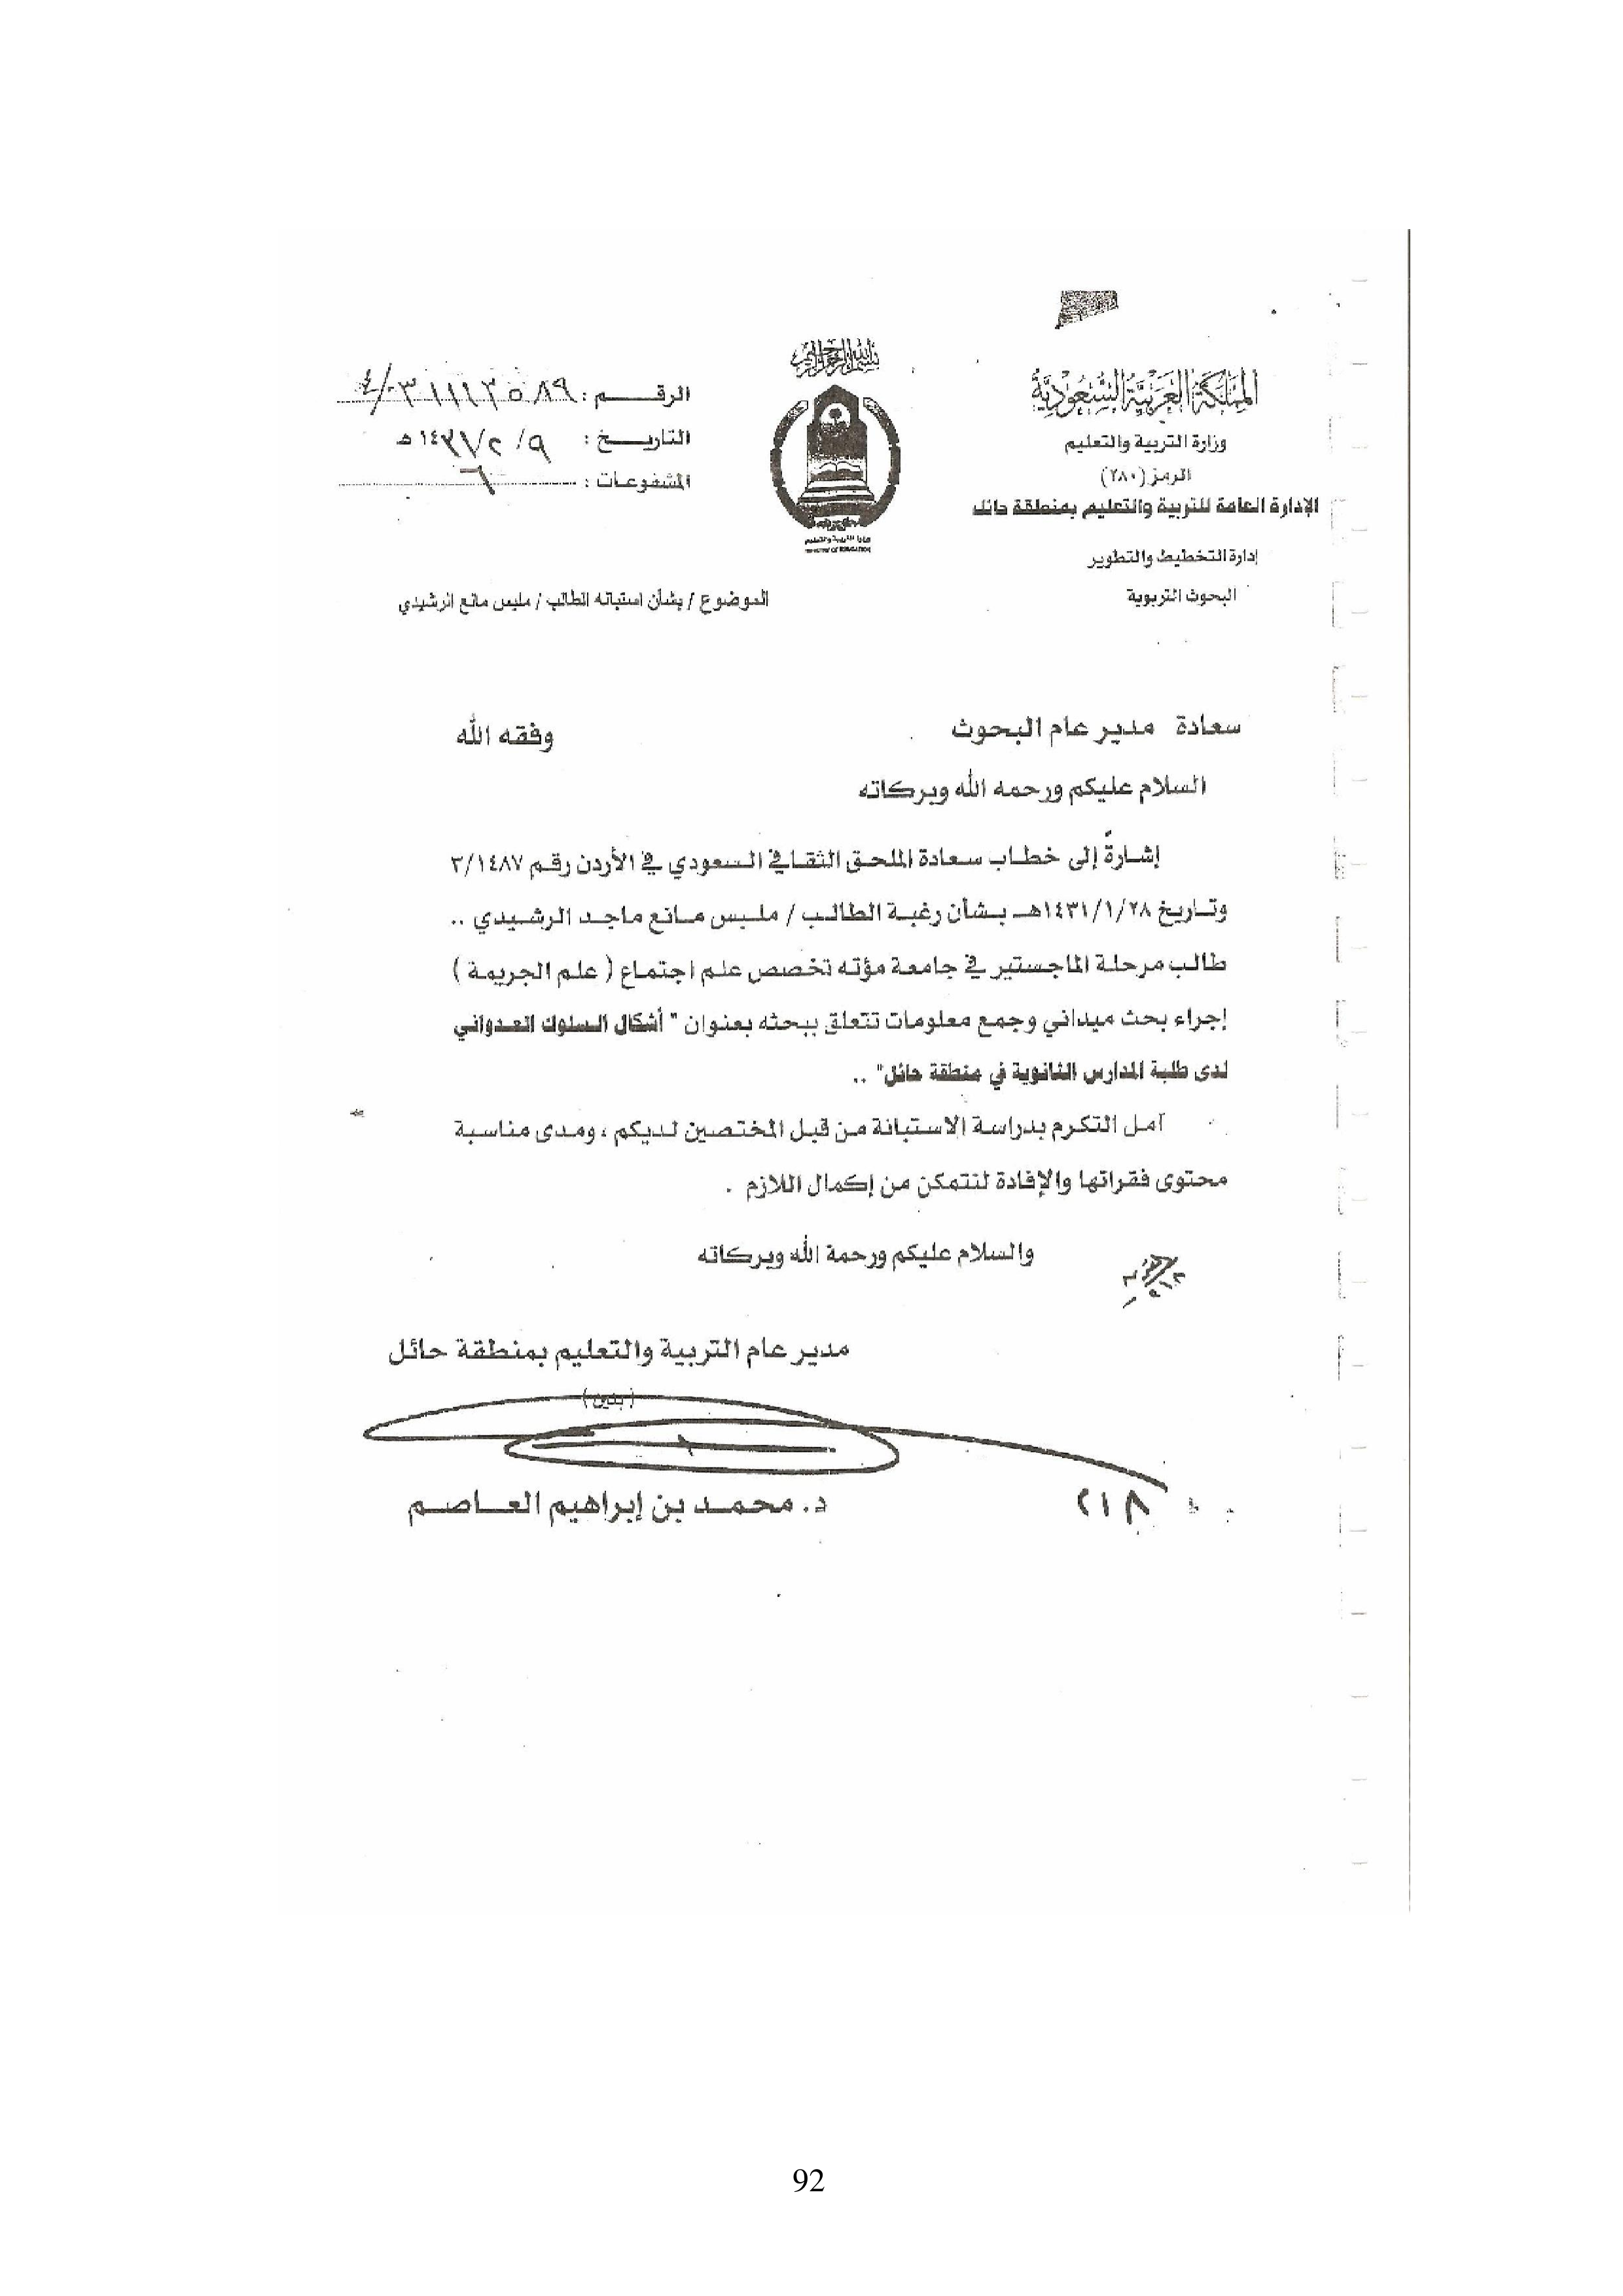 بسم الله الرحمن الرحيم
المملكة العربية السعودية
وزارة التربية والتعليم
الرمز (٢٨٠)
الإدارة العامة للتربية والتعليم بمنطقة حائل
إدارة التخطيط والتطوير
البحوث التربوية
الرقـــــم :
التاريـــخ : ٩/ ٢/ ١٤٣١ هـ
المشفوعـات : ٦
وزارة التربية والتعليم
MINISTRY OF EDUCATION
الموضوع / بشأن استبانه الطالب / مليس مانع الرشيدي
سعادة مدير عام البحوث وفقه الله
السلام عليكم ورحمه الله وبركاته
إشارةً إلى خطاب سعادة الملحق الثقافي السعودي في الأردن رقم ٢/١٤٨٧
وتاريخ ١٤٣١/١/٢٨هـ بشأن رغبة الطالب / مليس مانع ماجد الرشيدي ..
طالب مرحلة الماجستير في جامعة مؤته تخصص علم اجتماع ( علم الجريمة )
إجراء بحث ميداني وجمع معلومات تتعلق ببحثه بعنوان " أشكال السلوك العدواني
لدى طلبة المدارس الثانوية في منطقة حائل" ..
آمل التكرم بدراسة الاستبانة من قبل المختصين لديكم ، ومدى مناسبة
محتوى فقراتها والإفادة لنتمكن من إكمال اللازم .
والسلام عليكم ورحمة الله وبركاته
مدير عام التربية والتعليم بمنطقة حائل
د. محمد بن إبراهيم العاصم
٢١٨
92